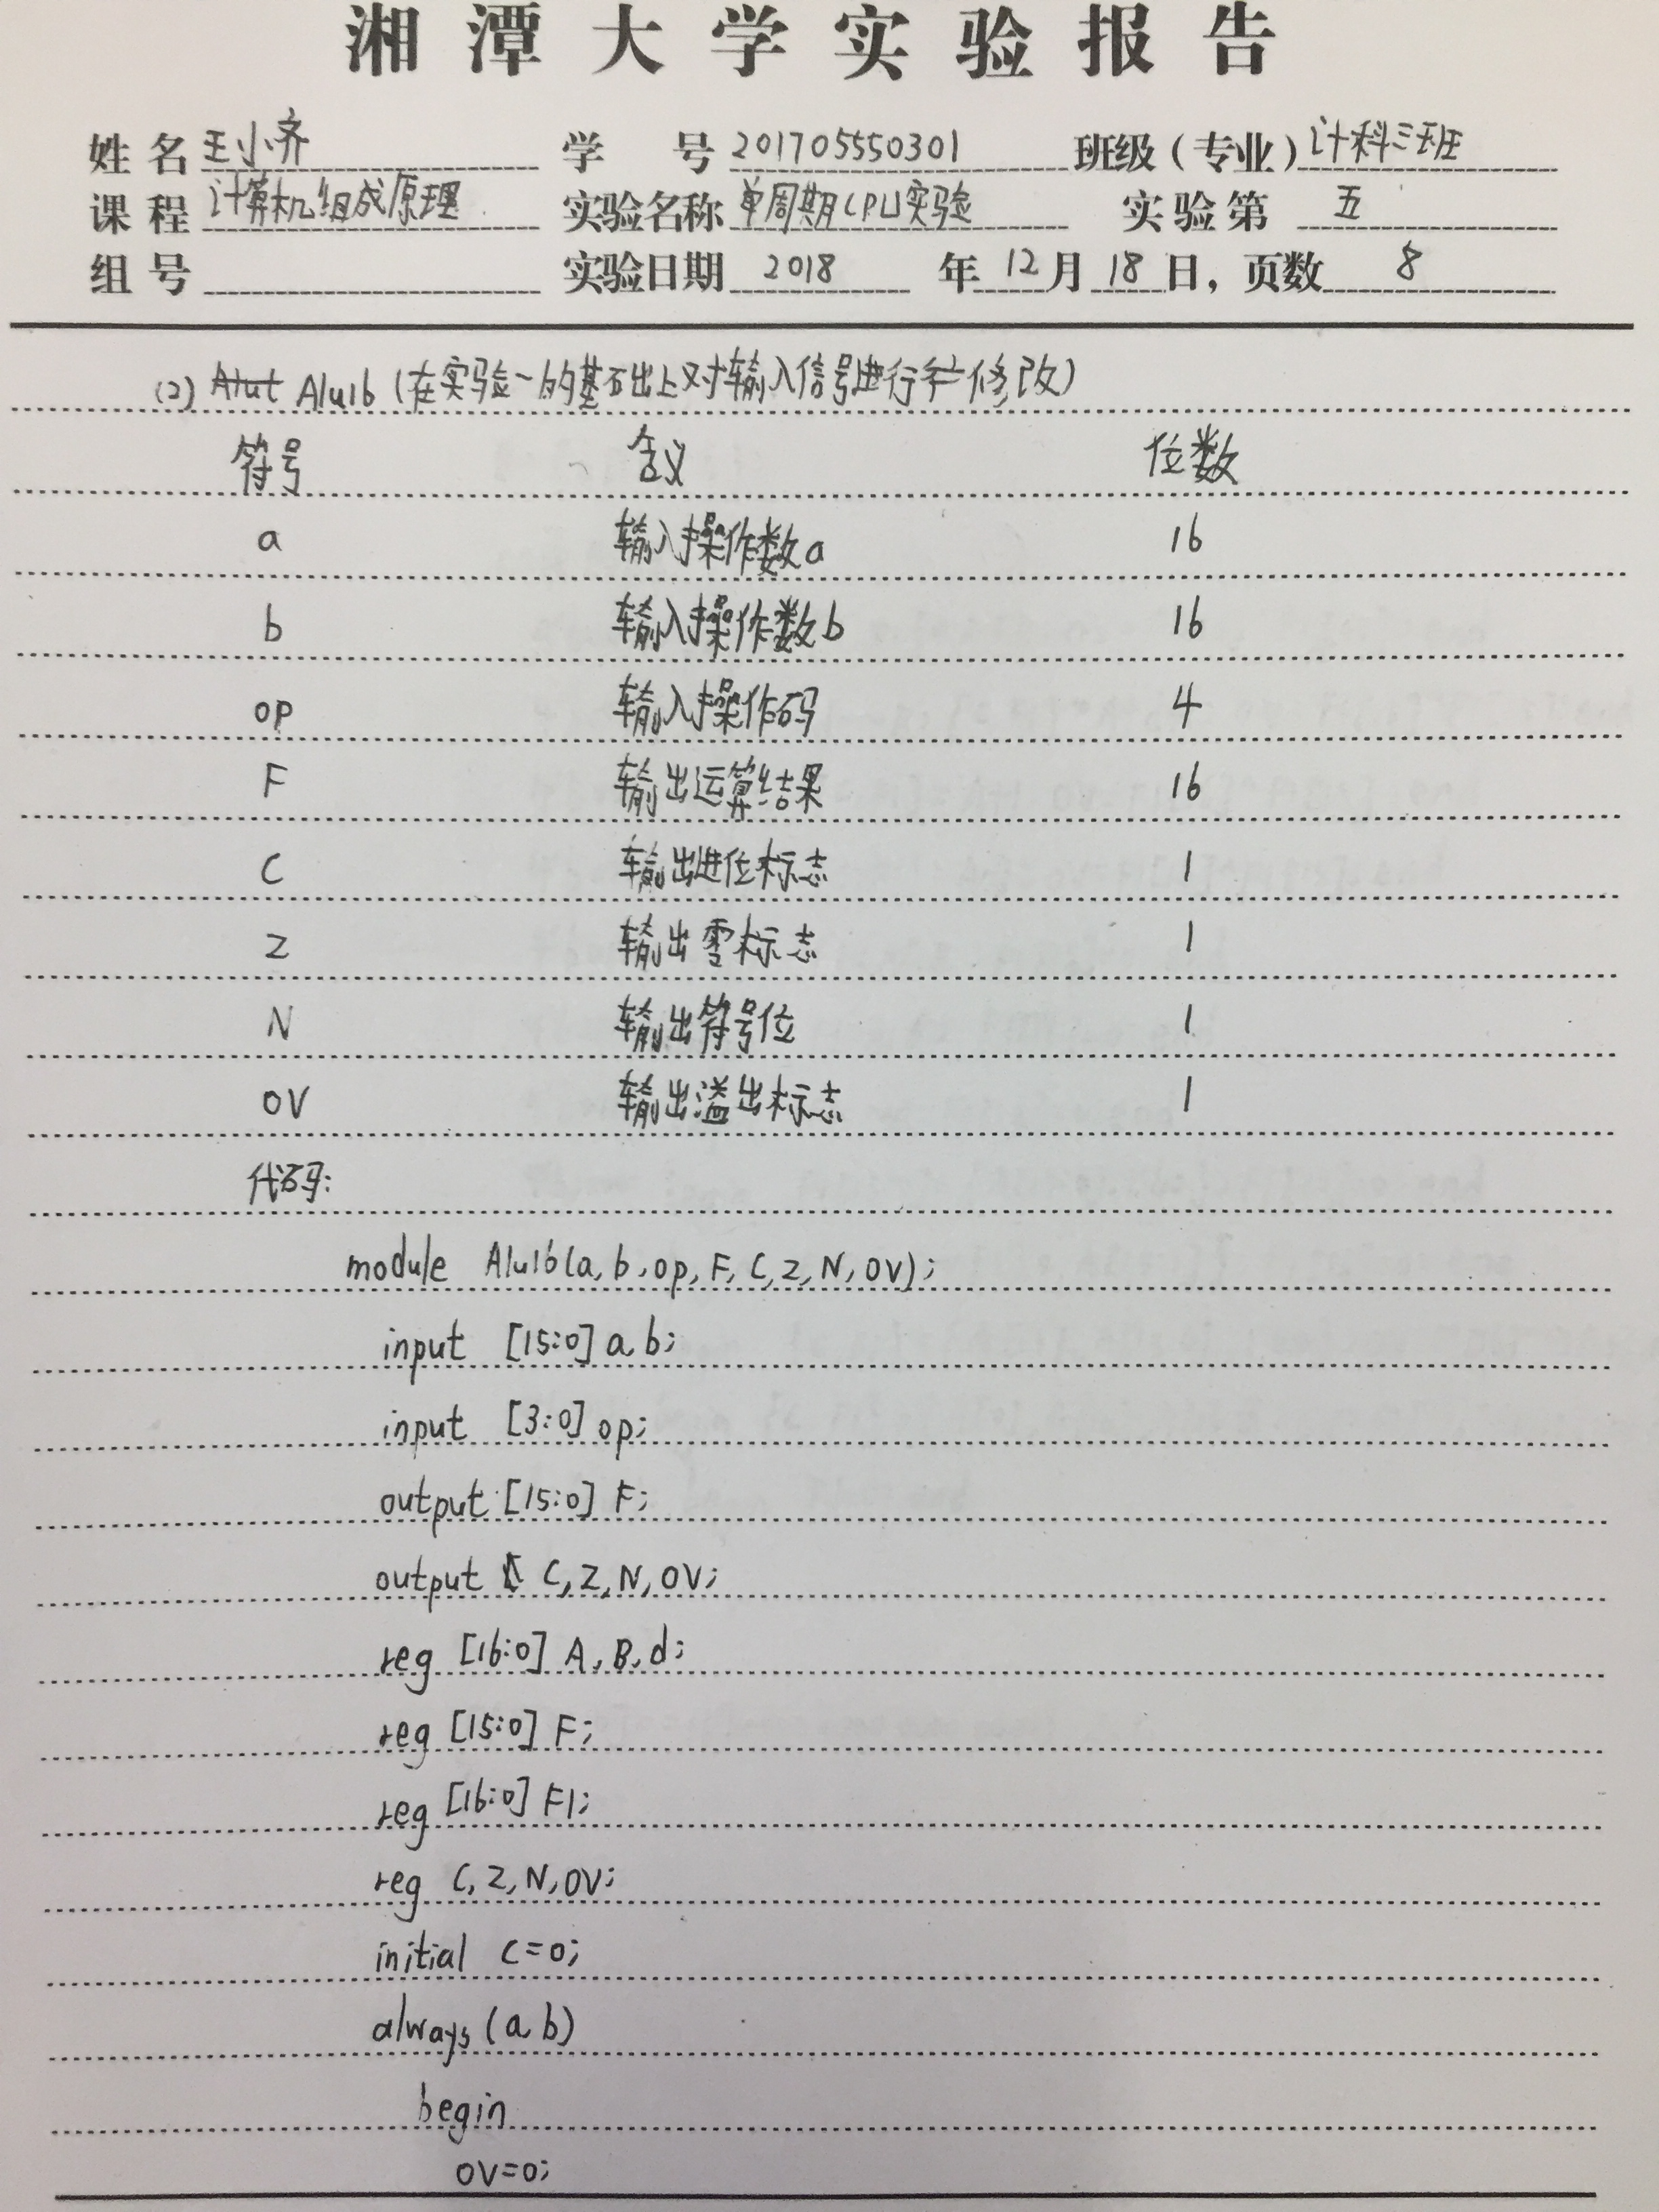 湘潭大学实验报告
姓名 王小齐 学号 201705550301 班级（专业）计科三班
课程 计算机组成原理 实验名称 单周期CPU实验 实验第 五
组号 实验日期 2018 年 12 月 18 日，页数 8
(2) Alut Alu16 (在实验一的基础上对输入信号进行 修改)
符号 含义 位数
a 输入操作数a 16
b 输入操作数b 16
op 输入操作码 4
F 输出运算结果 16
C 输出进位标志 1
Z 输出零标志 1
N 输出符号位 1
OV 输出溢出标志 1
代码:
module Alu16(a, b, op, F, C, Z, N, OV);
input [15:0] a, b;
input [3:0] op;
output [15:0] F;
output C, Z, N, OV;
reg [16:0] A, B, d;
reg [15:0] F;
reg [16:0] F1;
reg C, Z, N, OV;
initial C=0;
always (a, b)
begin
OV=0;